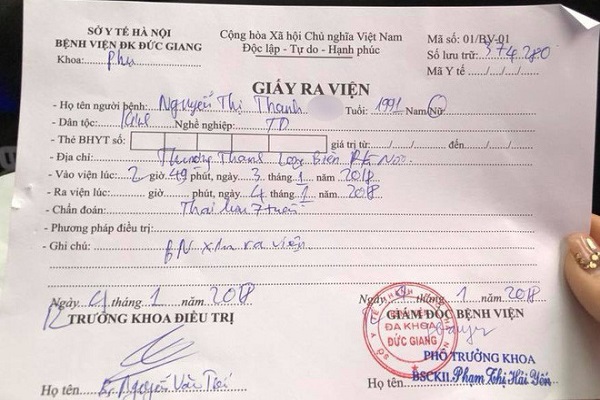 SỞ Y TẾ HÀ NỘI
BỆNH VIỆN ĐK ĐỨC GIANG
Khoa: Phụ
Cộng hòa Xã hội Chủ nghĩa Việt Nam
Độc lập - Tự do - Hạnh phúc
Mã số: 01/BV-01
Số lưu trữ: 374280
Mã Y tế ..../..../..../....
GIẤY RA VIỆN
- Họ tên người bệnh: Nguyễn Thị Thanh Tuổi: 1991 Nam/Nữ
- Dân tộc: Kinh Nghề nghiệp: TD
- Thẻ BHYT số: giá trị từ: ..../..../.... đến ..../..../....
- Địa chỉ: Thượng Thanh Long Biên Hà Nội
- Vào viện lúc: 2 giờ 49 phút, ngày 3 tháng 1 năm 2018
- Ra viện lúc: giờ phút, ngày 4 tháng 1 năm 2018
- Chẩn đoán: Thai lưu 7 tuần
- Phương pháp điều trị:
- Ghi chú: BN xin ra viện
Ngày 4 tháng 1 năm 2018
TRƯỞNG KHOA ĐIỀU TRỊ
Họ tên Nguyễn Văn
Ngày 4 tháng 1 năm 2018
GIÁM ĐỐC BỆNH VIỆN
ĐA KHOA
ĐỨC GIANG
PHÓ TRƯỞNG KHOA
Họ tên BSCKII. Phạm Thị Hải Yến